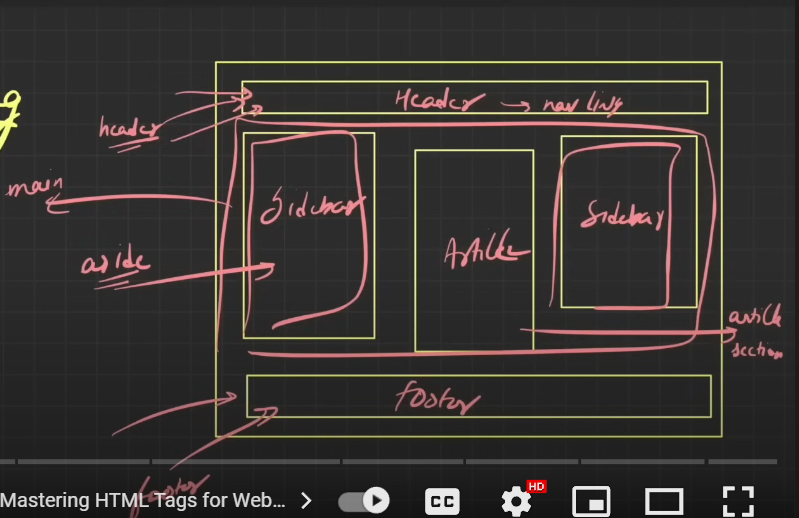 Header → nav links
header
main
Sidebar
Sidebar
Article
aside
article
section
footer
footer
Mastering HTML Tags for Web...
CC
HD